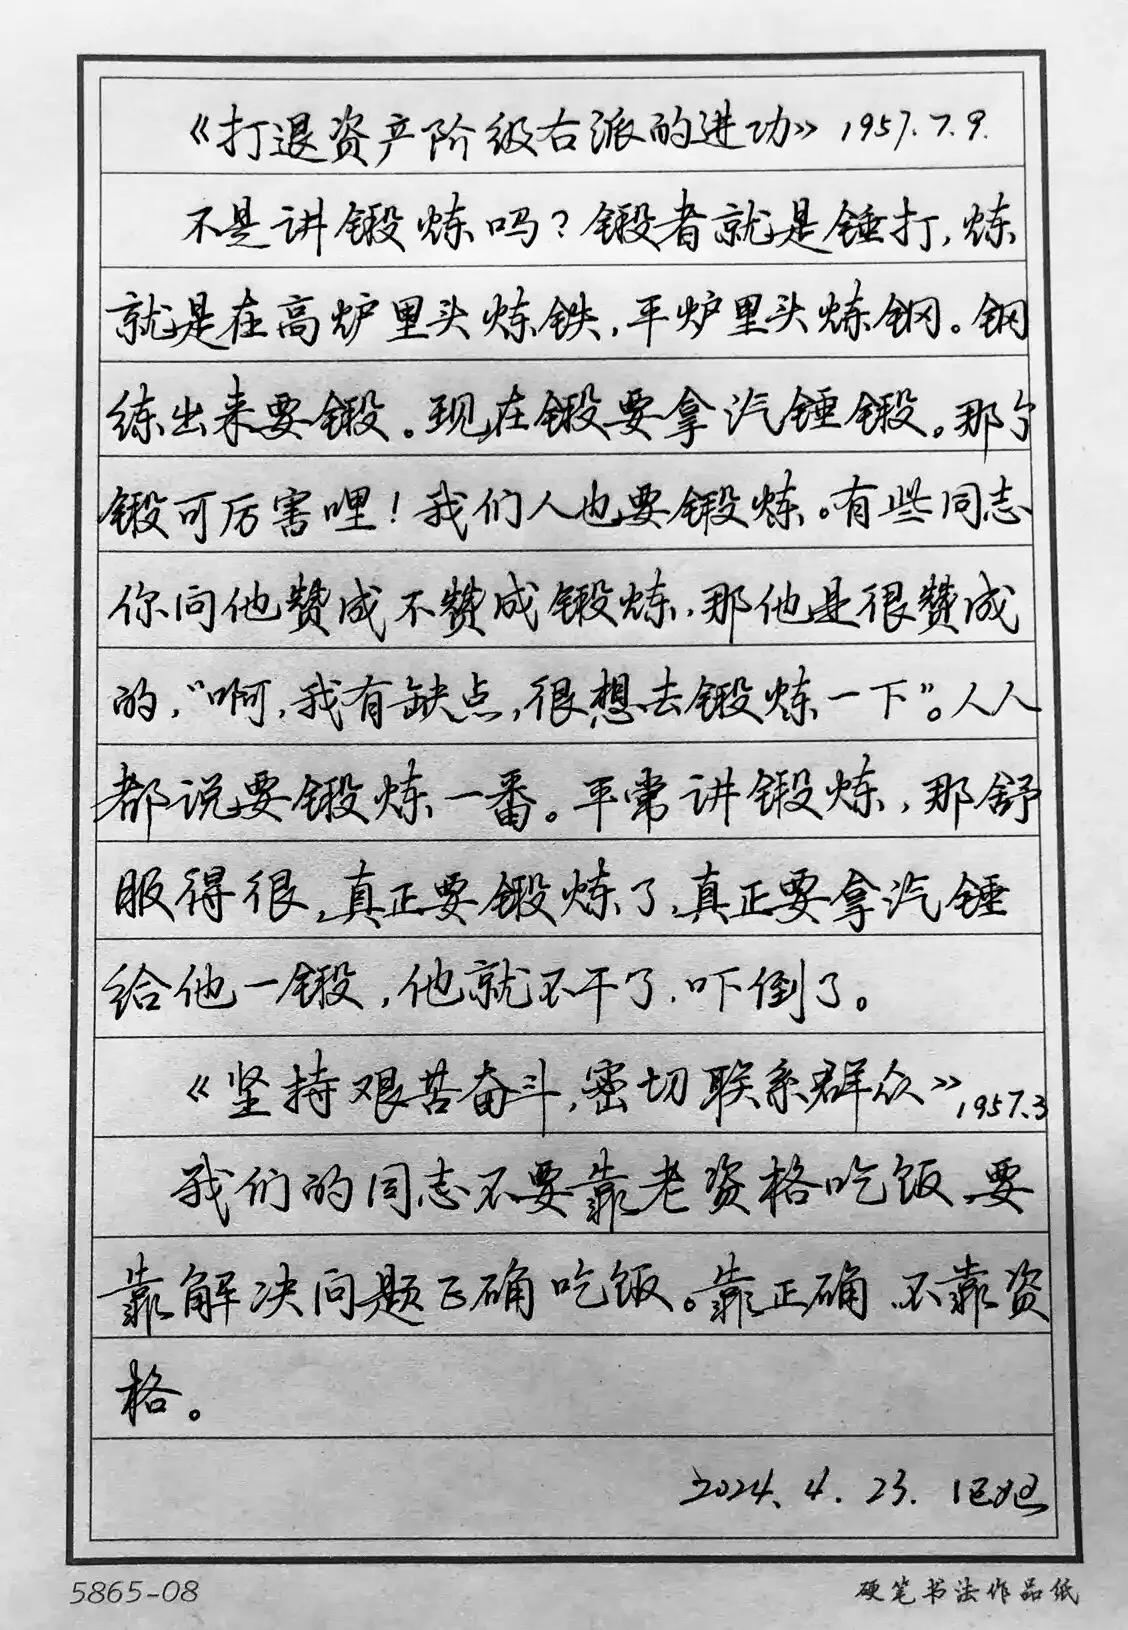 《打退资产阶级右派的进功》1957.7.9.
不是讲锻炼吗？锻者就是锤打，炼
就是在高炉里头炼铁，平炉里头炼钢。钢
练出来要锻。现在锻要拿汽锤锻。那个
锻可厉害哩！我们人也要锻炼。有些同志
你问他赞成不赞成锻炼，那他是很赞成
的，“啊，我有缺点，很想去锻炼一下”。人人
都说要锻炼一番。平常讲锻炼，那舒
服得很，真正要锻炼了，真正要拿汽锤
给他一锻，他就不干了，吓倒了。
《坚持艰苦奋斗，密切联系群众》1957.3
我们的同志不要靠老资格吃饭，要
靠解决问题正确吃饭。靠正确，不靠资
格。
2024.4.23.
5865-08
硬笔书法作品纸